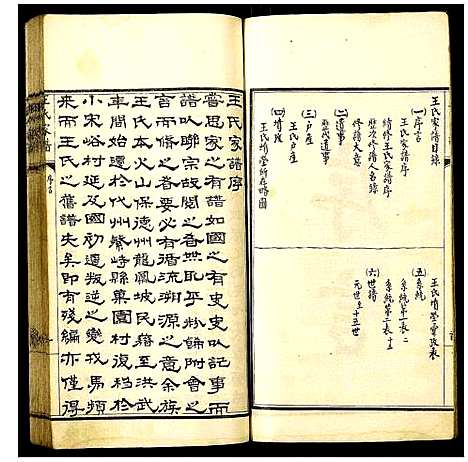 王氏家譜目錄
(一)序言
王氏家譜序
續修王氏家譜序
歷次修譜人名錄
修譜大意
(二)遺事
歷代遺事
(三)户產
王氏户產
(四)墳茔
王氏墳茔所在略圖
王氏墳茔
(五)系統
系統第一表
系統第二表
(六)世譜
元世至十五世
王氏家譜序
嘗思家之有譜如國之有史史以記事而
譜以聯宗故閱之者無取乎粉飾附會之
言而脩之者要必有循流溯源之意余族
王氏本火山保德州龍鳳坡民籍至洪武
年間始遷於代州繁峙縣菓園村後移於
小宋峪村延及國初遭叛逆之變戎馬頻
來而王氏之舊譜失矣即有殘編亦僅得
王氏家譜
序言